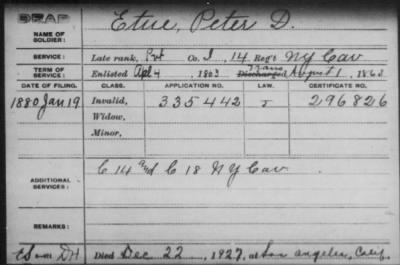 DEAF
Etue, Peter D.
NAME OF SOLDIER:
SERVICE: Late rank, Pvt Co. I, 14 Reg't NY Cav
TERM OF SERVICE: Enlisted Apl 4, 1863 Discharged Trans August 1, 1863
DATE OF FILING. CLASS. APPLICATION NO. LAW. CERTIFICATE NO.
1880 Jan. 19 Invalid, 335442 J 296826
Widow,
Minor,
ADDITIONAL SERVICES: C 14 and C 18 NY Cav.
REMARKS:
Died Dec 22, 1927, at Los Angeles, Calif.